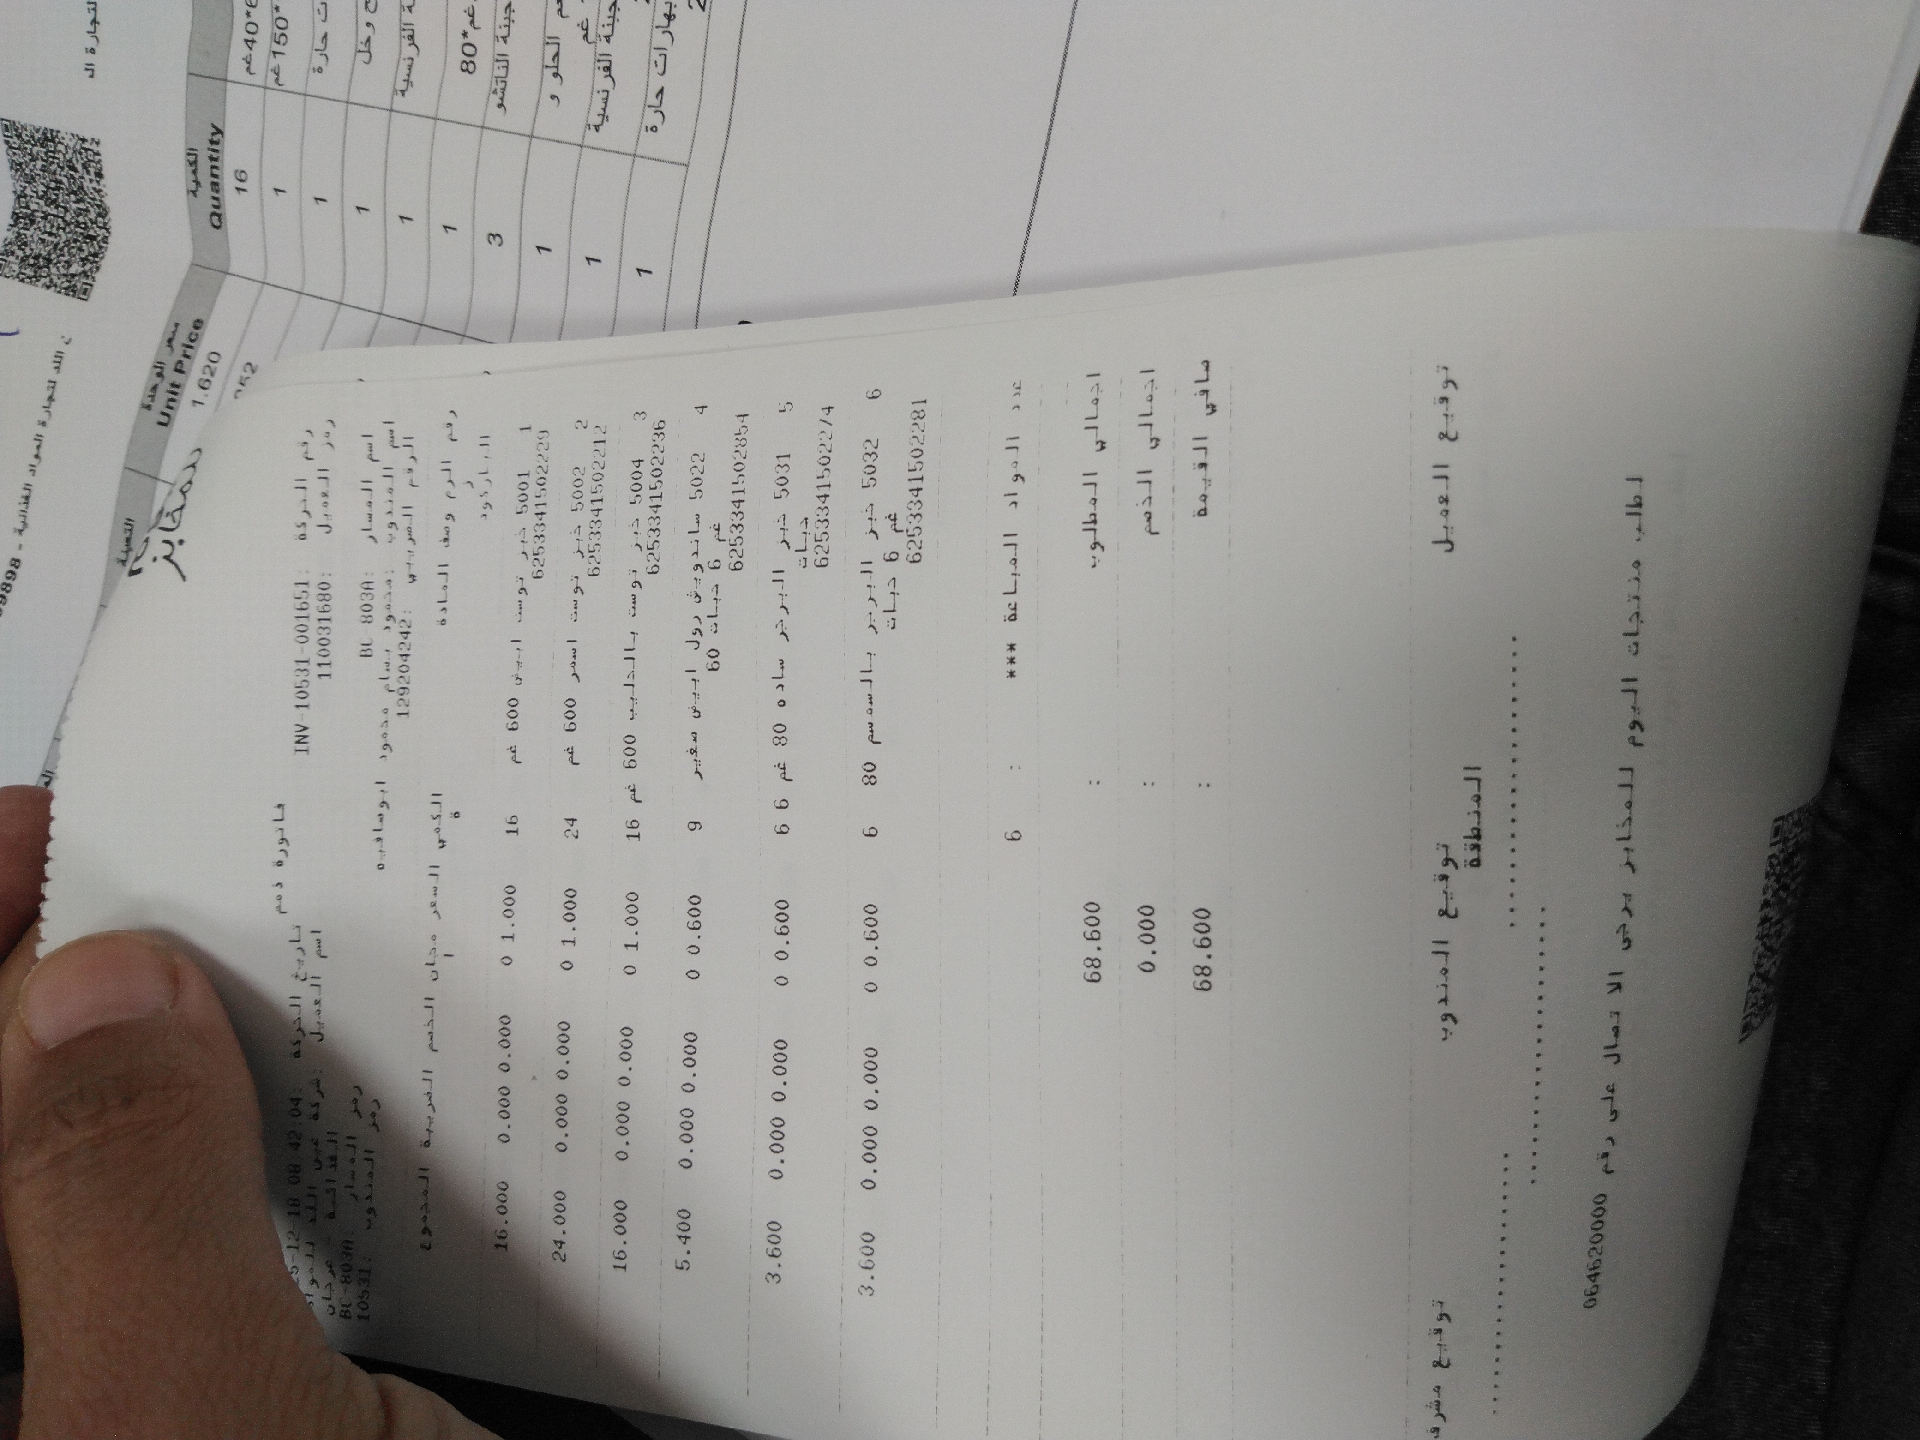 المخابز
فاتورة ذمم
رقم الحركة : INV-10531-001651 تاريخ الحركة : 25-12-18 08:42:04
رمز العميل : 110031680 اسم العميل : شركة عين الله للمواد
الغذائية - مرجان
اسم المسار : BC 803A رمز المسار : BC-803A
اسم المندوب : محمود بسام محمود ابوصافيه رمز المندوب : 10531
الرقم الضريبي : 129204242
رقم الرمز وصف المادة الكمية السعر مجان الخصم الضريبة المجموع
الباركود
1 5001 خبز توست ابيض 600 غم 16 1.000 0 0.000 0.000 16.000
6253341502229
2 5002 خبز توست اسمر 600 غم 24 1.000 0 0.000 0.000 24.000
6253341502212
3 5004 خبز توست بالحليب 600 غم 16 1.000 0 0.000 0.000 16.000
6253341502236
4 5022 ساندويش رول ابيض صغير 9 0.600 0 0.000 0.000 5.400
60 غم 6 حبات
6253341502854
5 5031 خبز البرجر ساده 80 غم 6 6 0.600 0 0.000 0.000 3.600
حبات
6253341502274
6 5032 خبز البرجر بالسمسم 80 6 0.600 0 0.000 0.000 3.600
غم 6 حبات
6253341502281
عدد المواد المباعة *** : 6
اجمالي المطلوب : 68.600
اجمالي الخصم : 0.000
صافي القيمة : 68.600
توقيع العميل توقيع المندوب توقيع مشرف
المنطقة
لطلب منتجات اليوم للمخابز يرجى الاتصال على رقم 064620000
الكمية
Quantity
سعر الوحدة
Unit Price
16
1
1
1
1
1
3
1
1
1
1.620
40*6غم
150*غم
ت حارة
ح وخل
ة الفرنسية
80*غم
جبنة الناتشو
م الحلو و
جبنة الفرنسية
غم
بهارات حارة
ن الله لتجارة المواد الغذائية - 99898